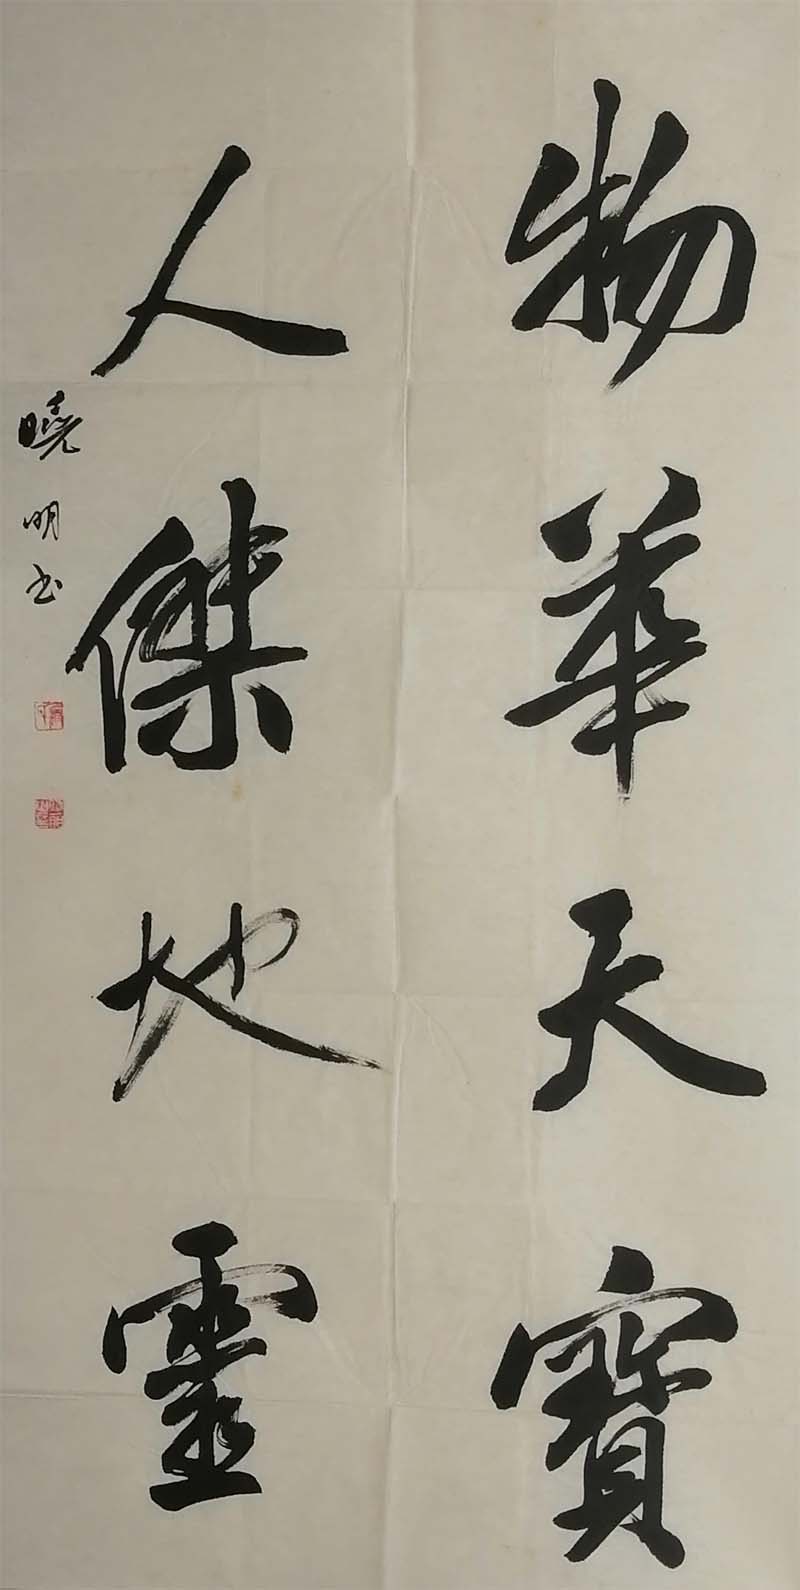 物華天寶
人傑地靈
曉明书